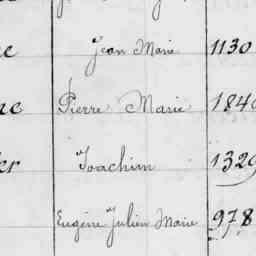 Jean Marie 1130
Pierre Marie 184
Joachim 1329
Eugène Julien Marie 978